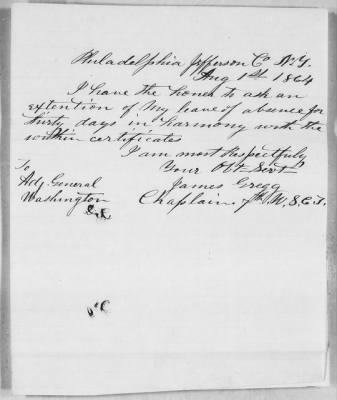 Philadelphia Jefferson Co N.Y.
Aug 1st 1864
I have the honor to ask an
extention of My leave of absence for
thirty days in harmony with the
within certificates
I am most Respectfully
Your Obt Servt
James Gregg
Chaplain 7th U.S.C.T.
To
Adj. General
Washington
D.C.